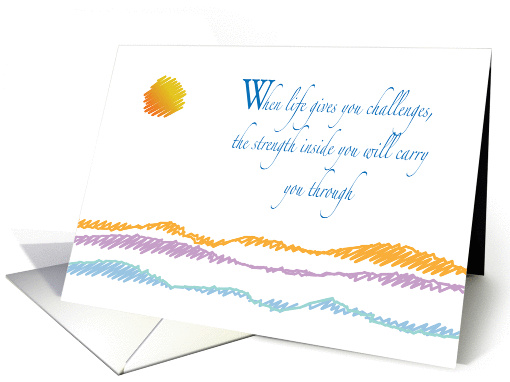 When life gives you challenges,
the strength inside you will carry
you through